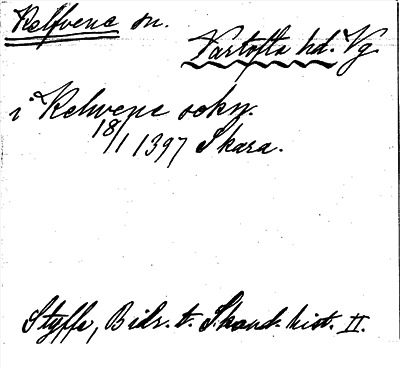 Kelfvene sn.
Vartofta hd. Vg.
i Kelvene sokn.
18/1 1397 Skara.
Styffe, Bidr. t. Skand. hist. II.